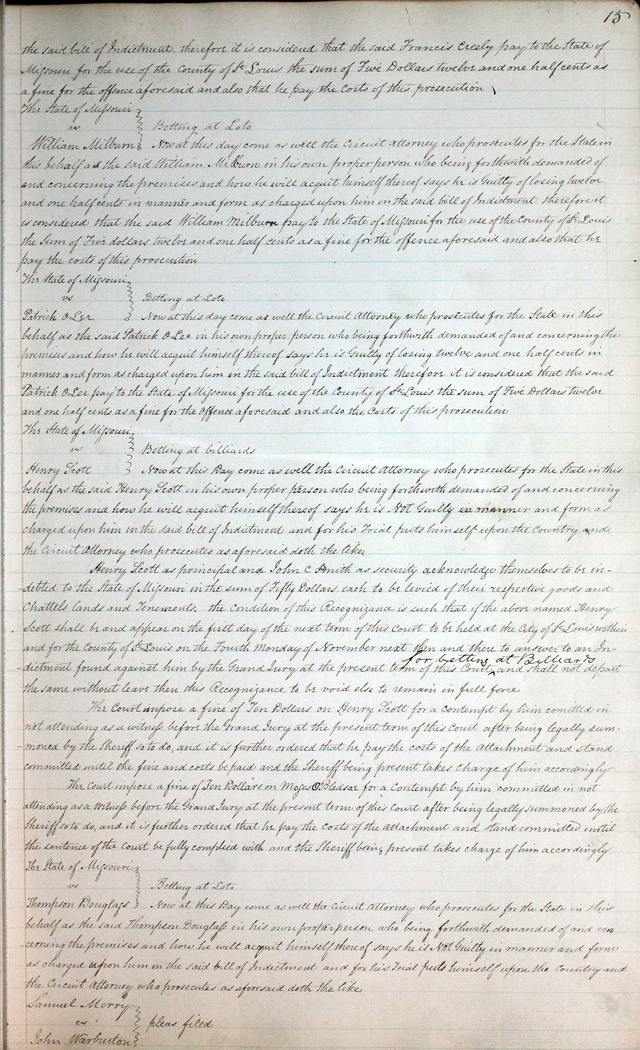 15
the said bill of Indictment therefore it is considered that the said Francis Creely pay to the State of
Missouri for the use of the County of St. Louis the sum of Five Dollars twelve and one half cents as
a fine for the offence aforesaid and also that he pay the costs of this prosecution
The State of Missouri
vs Betting at Loto
William Milburn Now at this day come as well the Circuit Attorney who prosecutes for the State in
this behalf as the said William Milburn in his own proper person who being forthwith demanded of
and concerning the premises and how he will acquit himself thereof says he is Guilty of losing twelve
and one half cents in manner and form as charged upon him in the said bill of Indictment therefore it
is considered that the said William Milburn pay to the State of Missouri for the use of the County of St. Louis
the Sum of Five dollars twelve and one half cents as a fine for the offence aforesaid and also that he
pay the costs of this prosecution
The State of Missouri
vs Betting at Loto
Patrick O Lee Now at this day come as well the Circuit Attorney who prosecutes for the State in this
behalf as the said Patrick O Lee in his own proper person who being forthwith demanded of and concerning the
premises and how he will acquit himself thereof says he is Guilty of losing twelve and one half cents in
manner and form as charged upon him in the said bill of Indictment therefore it is considered that the said
Patrick O Lee pay to the State of Missouri for the use of the County of St. Louis the sum of Five Dollars twelve
and one half cents as a fine for the Offence aforesaid and also the Costs of this prosecution
The State of Missouri
vs Betting at billiards
Henry Scott Now at this Day come as well the Circuit Attorney who prosecutes for the State in this
behalf as the said Henry Scott in his own proper person who being forthwith demanded of and concerning
the premises and how he will acquit himself thereof says he is Not Guilty in manner and form as
charged upon him in the said bill of Indictment and for his Trial puts himself upon the Country and
the Circuit Attorney who prosecutes as aforesaid doth the like
Henry Scott as principal and John C Smith as security acknowledge themselves to be in-
debted to the State of Missouri in the sum of Fifty Dollars each to be levied of their respective goods and
Chattels lands and Tenements. the condition of this Recognizance is such that if the above named Henry
Scott shall be and appear on the first day of the next term of this Court to be held at the City of St. Louis within
and for the County of St. Louis on the Fourth Monday of November next then and there to answer to an In-
for betting at Billiards
dictment found against him by the Grand Jury at the present term of this Court, and shall not depart
the same without leave then this Recognizance to be void else to remain in full force
The Court impose a fine of Ten Dollars on Henry Scott for a contempt by him comitted in
not attending as a witness before the Grand Jury at the present term of this Court after being legally sum-
moned by the Sheriff so to do, and it is further ordered that he pay the costs of the attachment and stand
committed until the fine and costs be paid and the Sheriff being present takes Charge of him accordingly
The Court impose a fine of Ten Dollars on Moses for a Contempt by him committed in not
attending as a Witness before the Grand Jury at the present term of this Court after being legally summoned by the
Sheriff so to do, and it is further ordered that he pay the costs of the attachment and stand committed until
the sentence of the Court be fully complied with and the Sheriff being present takes charge of him accordingly
The State of Missouri
vs Betting at Loto
Thompson Douglass Now at this Day come as well the Circuit Attorney who prosecutes for the State in this
behalf as the said Thompson Douglass in his own proper person who being forthwith demanded of and con
cerning the premises and how he will acquit himself thereof says he is Not Guilty in manner and form
as charged upon him in the said bill of Indictment and for his Trial puts himself upon the Country and
the Circuit Attorney who prosecutes as aforesaid doth the like
Samuel Merry
vs pleas filed
John Warburton